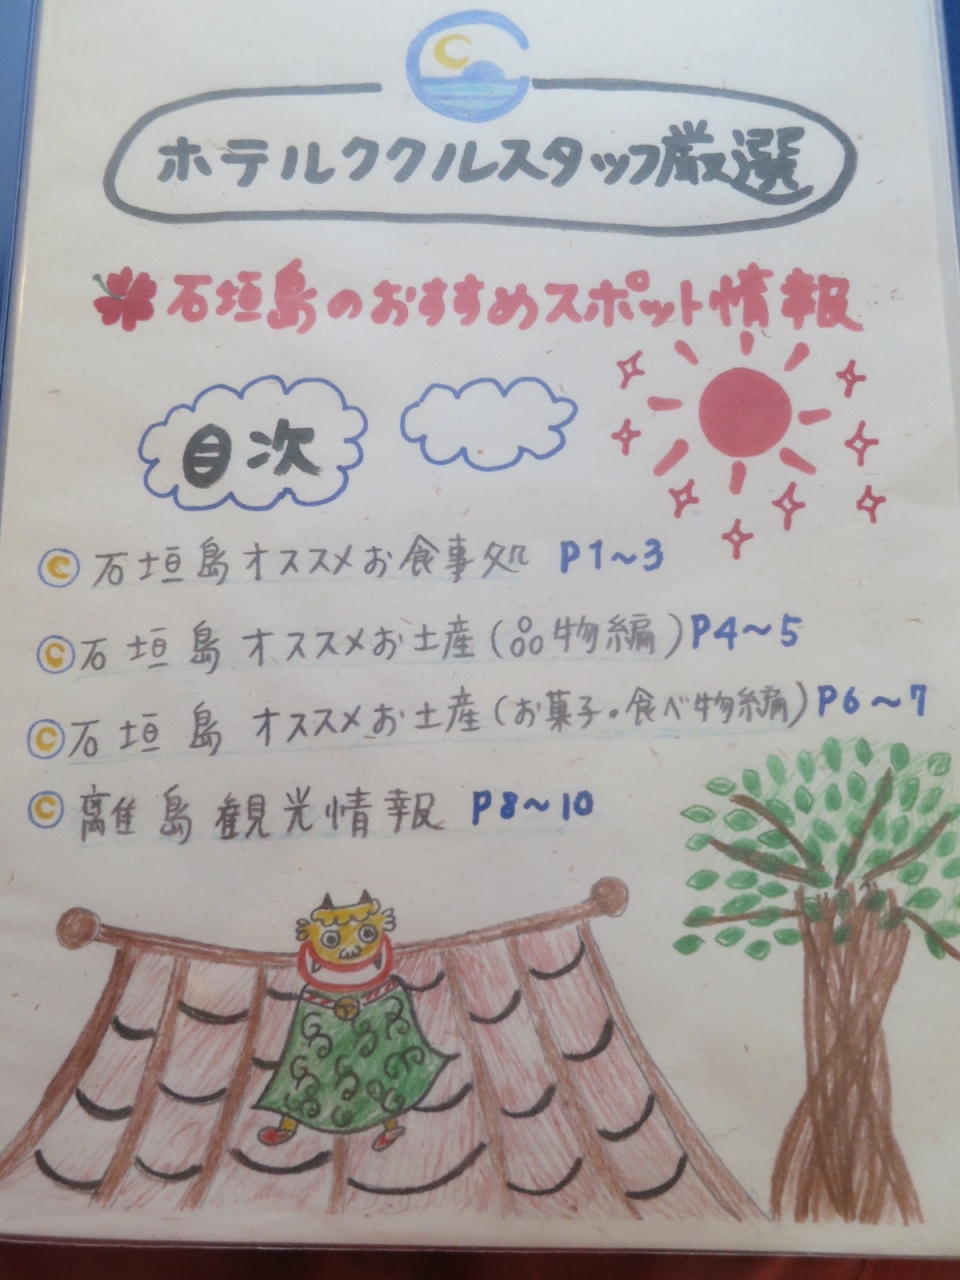 ホテルククルスタッフ厳選
石垣島のおすすめスポット情報
目次
石垣島オススメお食事処 P1~3
石垣島オススメお土産(品物編)P4~5
石垣島オススメお土産(お菓子・食べ物編)P6~7
離島観光情報 P8~10